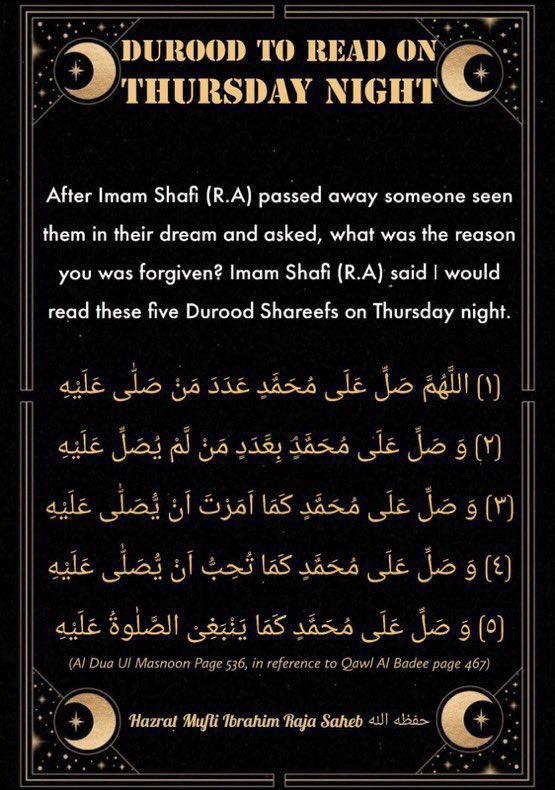 DUROOD TO READ ON
THURSDAY NIGHT
After Imam Shafi (R.A) passed away someone seen
them in their dream and asked, what was the reason
you was forgiven? Imam Shafi (R.A) said I would
read these five Durood Shareefs on Thursday night.
(١) اللَّهُمَّ صَلِّ عَلَى مُحَمَّدٍ عَدَدَ مَنْ صَلّٰى عَلَيْهِ
(٢) وَ صَلِّ عَلَى مُحَمَّدٍ بِعَدَدِ مَنْ لَّمْ يُصَلِّ عَلَيْهِ
(٣) وَ صَلِّ عَلَى مُحَمَّدٍ كَمَا اَمَرْتَ اَنْ يُّصَلّٰى عَلَيْهِ
(٤) وَ صَلِّ عَلَى مُحَمَّدٍ كَمَا تُحِبُّ اَنْ يُّصَلّٰى عَلَيْهِ
(٥) وَ صَلِّ عَلَى مُحَمَّدٍ كَمَا يَنْبَغِىْ الصَّلٰوةُ عَلَيْهِ
(Al Dua Ul Masnoon Page 536, in reference to Qawl Al Badee page 467)
Hazrat Mufti Ibrahim Raja Saheb حفظه الله